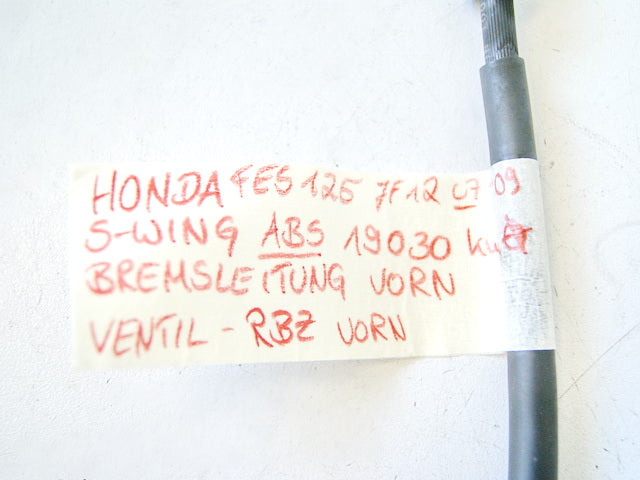 HONDA FES 125 7F12 07 09
S-WING ABS 19030 km
BREMSLEITUNG VORN
VENTIL - RBZ VORN